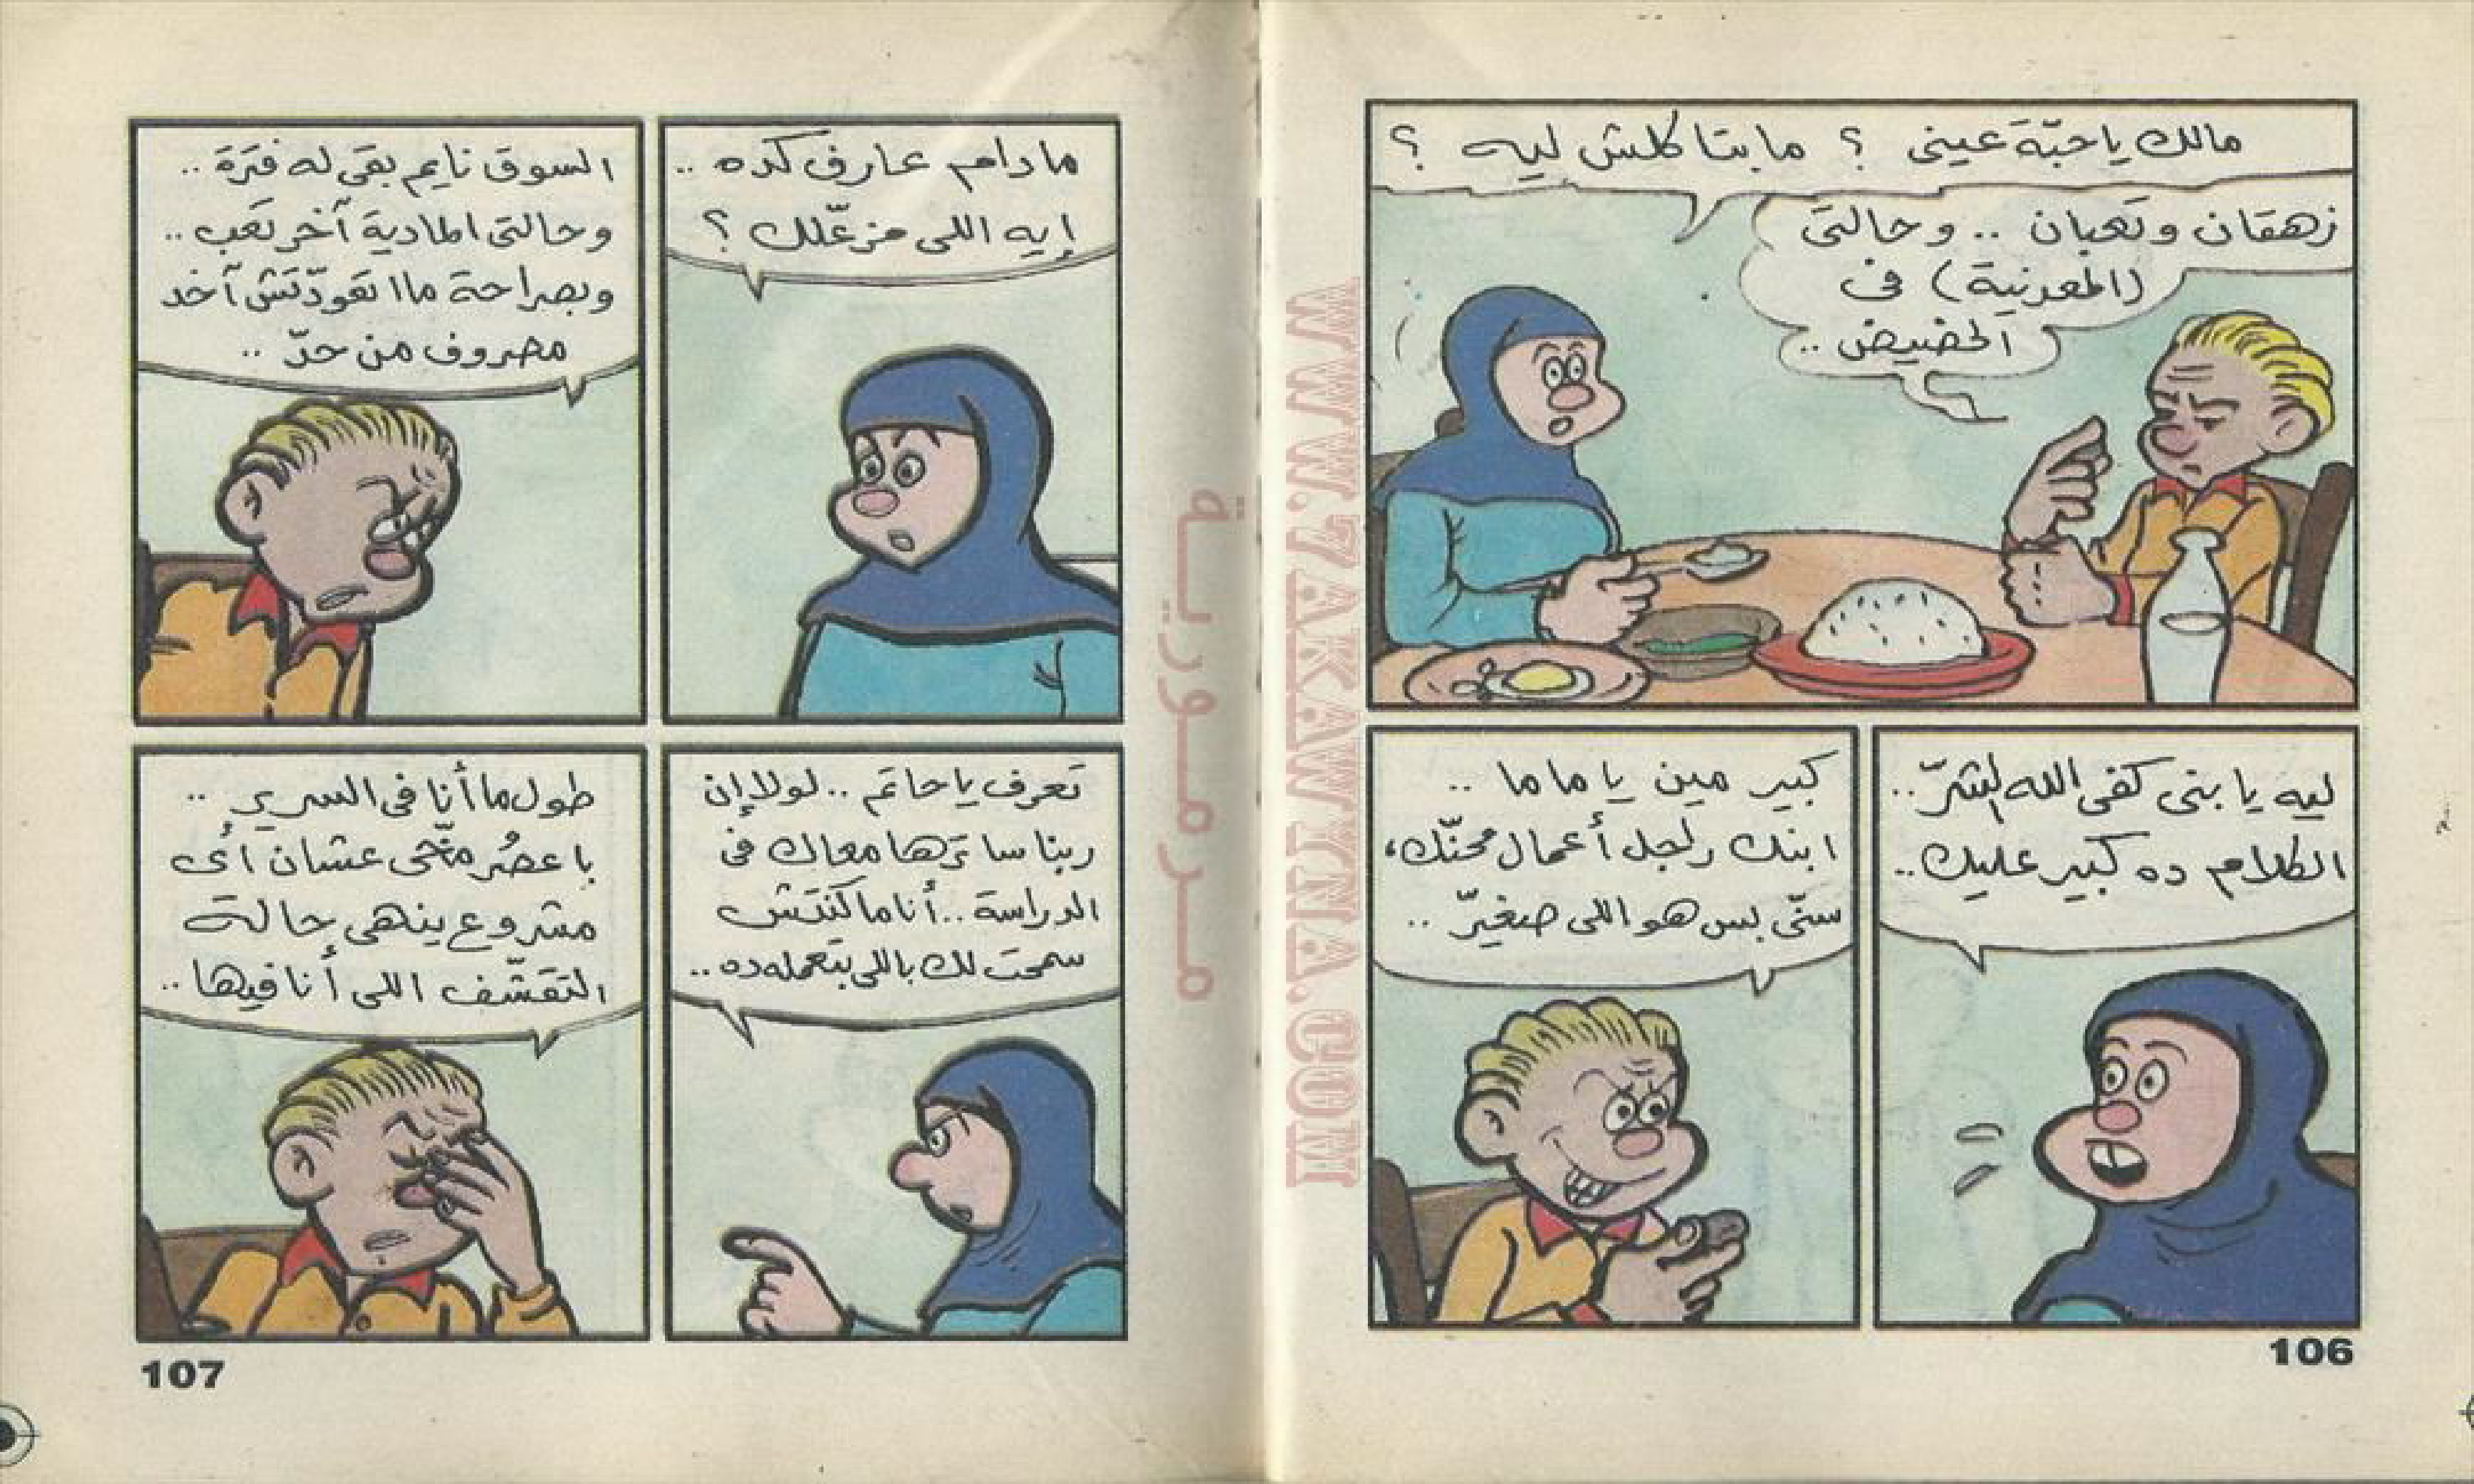 مالك يا حبّة عينى ؟ مابتاكلش ليه ؟
زهقان وتعبان .. وحالتى
(المعدنية) فى
الحضيض ..
ليه يا بنى كفى الله الشرّ ..
الكلام ده كبير عليك ..
كبير مين يا ماما ..
ابنك راجل أعمال محنّك،
سنّى بس هو اللى صغيرّ ..
106
مادام عارف كده ..
إيه اللى مزعّلك ؟
السوق نايم بقى له فترة ..
وحالتى المادية آخر تعب ..
وبصراحة ماا تعودّتش آخد
مصروف من حدّ ..
تعرف يا حاتم .. لولا إن
ربنا ساترها معاك فى
الدراسة .. أنا ماكنتش
سمحت لك باللى بتعمله ده ..
طول ما أنا فى السرير ..
باعصُر مخّى عشان أى
مشروع ينهى حالة
التقشّف اللى أنا فيها ..
107
مرمورية
WWW.7AKAWINA.COM